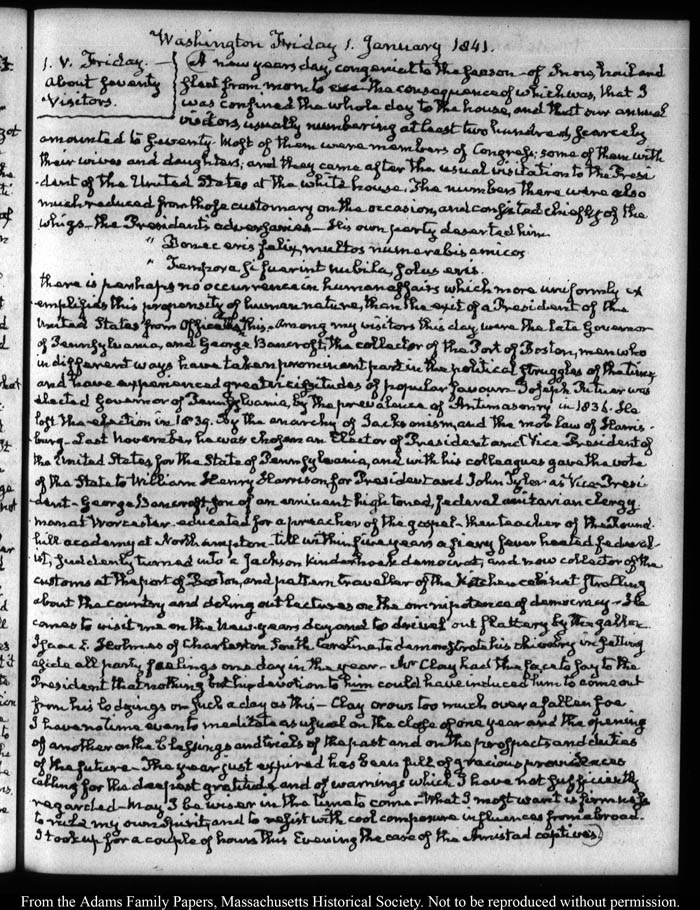 Washington Friday 1. January 1841.
1. V. Friday.
About seventy
Visitors.
A new years day, congenial to the season of Snow, hail and
sleet from morn to eve. The consequence of which was, that I
was confined the whole day to the house, and that our annual
visitors, usually numbering at least two hundred, scarcely
amounted to seventy. Most of them were members of Congress; some of them with
their wives and daughters; and they came after the usual visitation to the Presi-
-dent of the United States at the white house. The numbers there were also
much reduced from those customary on the occasion, and consisted chiefly of the
whigs—the President's adversaries—His own party deserted him.
" Donec eris felix, multos numerabis amicos
" Tempora si fuerint nubila, solus eris.
there is perhaps no occurrence in human affairs which more uniformly ex
-emplifies this propensity of human nature, than the exit of a President of the
United States from Office this. Among my visitors this day were the late Governor
of Pennsylvania, and George Bancroft, the collector of the Port of Boston, men who
in different ways have taken prominent part in the political struggles of the time
and have experienced great vicissitudes of popular favour. Joseph Ritner was
elected Governor of Pennsylvania, by the prevalence of Antimasonry in 1836. He
lost the election in 1839. By the anarchy of Jacksonism, and the mob law of Harris-
burg. Last November he was chosen an Elector of President and Vice-President of
the United States for the State of Pennsylvania, and with his colleagues gave the vote
of the State to William Henry Harrison for President and John Tyler as Vice-Presi
-dent—George Bancroft, son of an eminent high toned, federal unitarian clergy
man at Worcester—educated for a preacher of the gospel—then teacher of the Round-
hill academy at Northampton—till within five years a fiery fever heated federal-
ist, suddenly turned into a Jackson kinderhook democrat, and now collector of the
customs at the port of Boston, and pattern traveller of the Kitchen cabinet strolling
about the country and doling out lectures on the omnipotence of democracy—He
comes to visit me on the New-years day and to drivel out flattery by the gallon.
Isaac E. Holmes of Charleston South Carolina to demonstrate his chivalry in setting
aside all party feelings one day in the year—Mr Clay had the face to say to the
President that nothing but his devotion to him could have induced him to come out
from his lodgings on such a day as this—Clay crows too much over a fallen foe.
I have no time even to meditate as usual on the close of one year and the opening
of another on the blessings and trials of the past and on the prospects and duties
of the future—The year just expired has been full of gracious providences
calling for the deepest gratitude and of warnings which I have not sufficiently
regarded—May I be wiser in the time to come—What I most want is firmness
to rule my own Spirit, and to resist with cool composure influences from abroad.
I took up for a couple of hours this Evening the case of the Amistad captives.
From the Adams Family Papers, Massachusetts Historical Society. Not to be reproduced without permission.